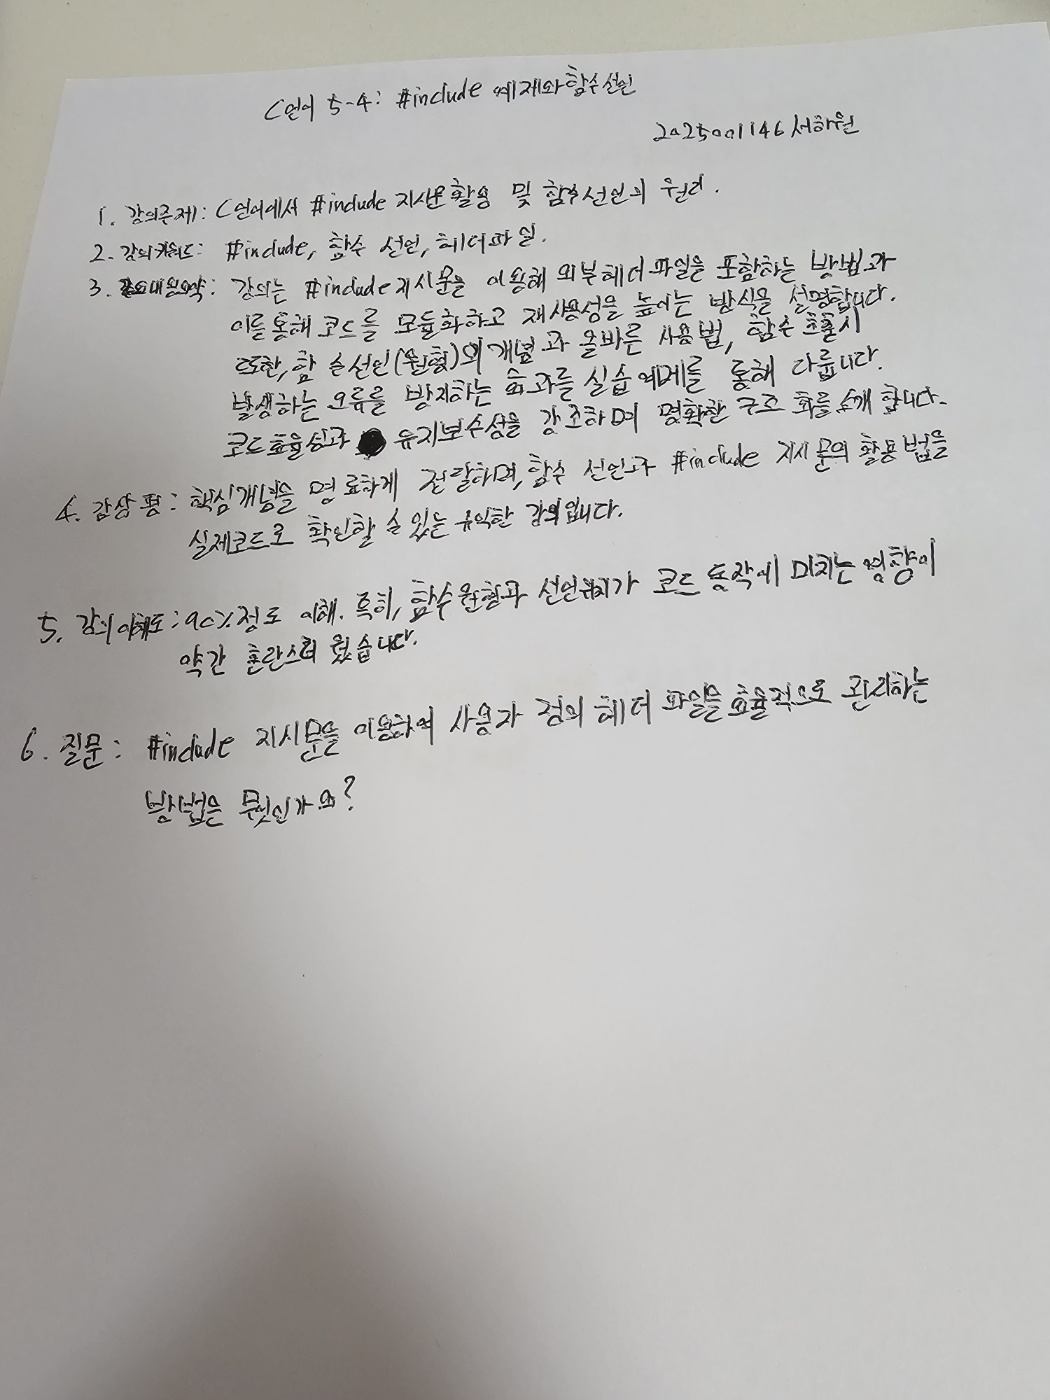 C언어 5-4: #include 예제와 함수선언
2025001146 서하원
1. 강의주제: C언어에서 #include 지시문 활용 및 함수선언의 원리.
2. 강의키워드: #include, 함수 선언, 헤더파일.
3. 강의내용요약: 강의는 #include 지시문을 이용해 외부헤더 파일을 포함하는 방법과
이를 통해 코드를 모듈화하고 재사용성을 높이는 방식을 설명합니다.
또한, 함수선언(원형)의 개념과 올바른 사용법, 함수 호출시
발생하는 오류를 방지하는 효과를 실습 예제를 통해 다룹니다.
코드효율성과 유지보수성을 강조하며 명확한 구조화를 소개 합니다.
4. 감상평: 핵심개념을 명료하게 전달하며, 함수 선언과 #include 지시문의 활용법을
실제코드로 확인할 수 있는 유익한 강의입니다.
5. 강의이해도: 90%정도 이해. 특히, 함수원형과 선언위치가 코드 동작에 미치는 영향이
약간 혼란스러웠습니다.
6. 질문: #include 지시문을 이용하여 사용자 정의 헤더 파일을 효율적으로 관리하는
방법은 무엇인가요?